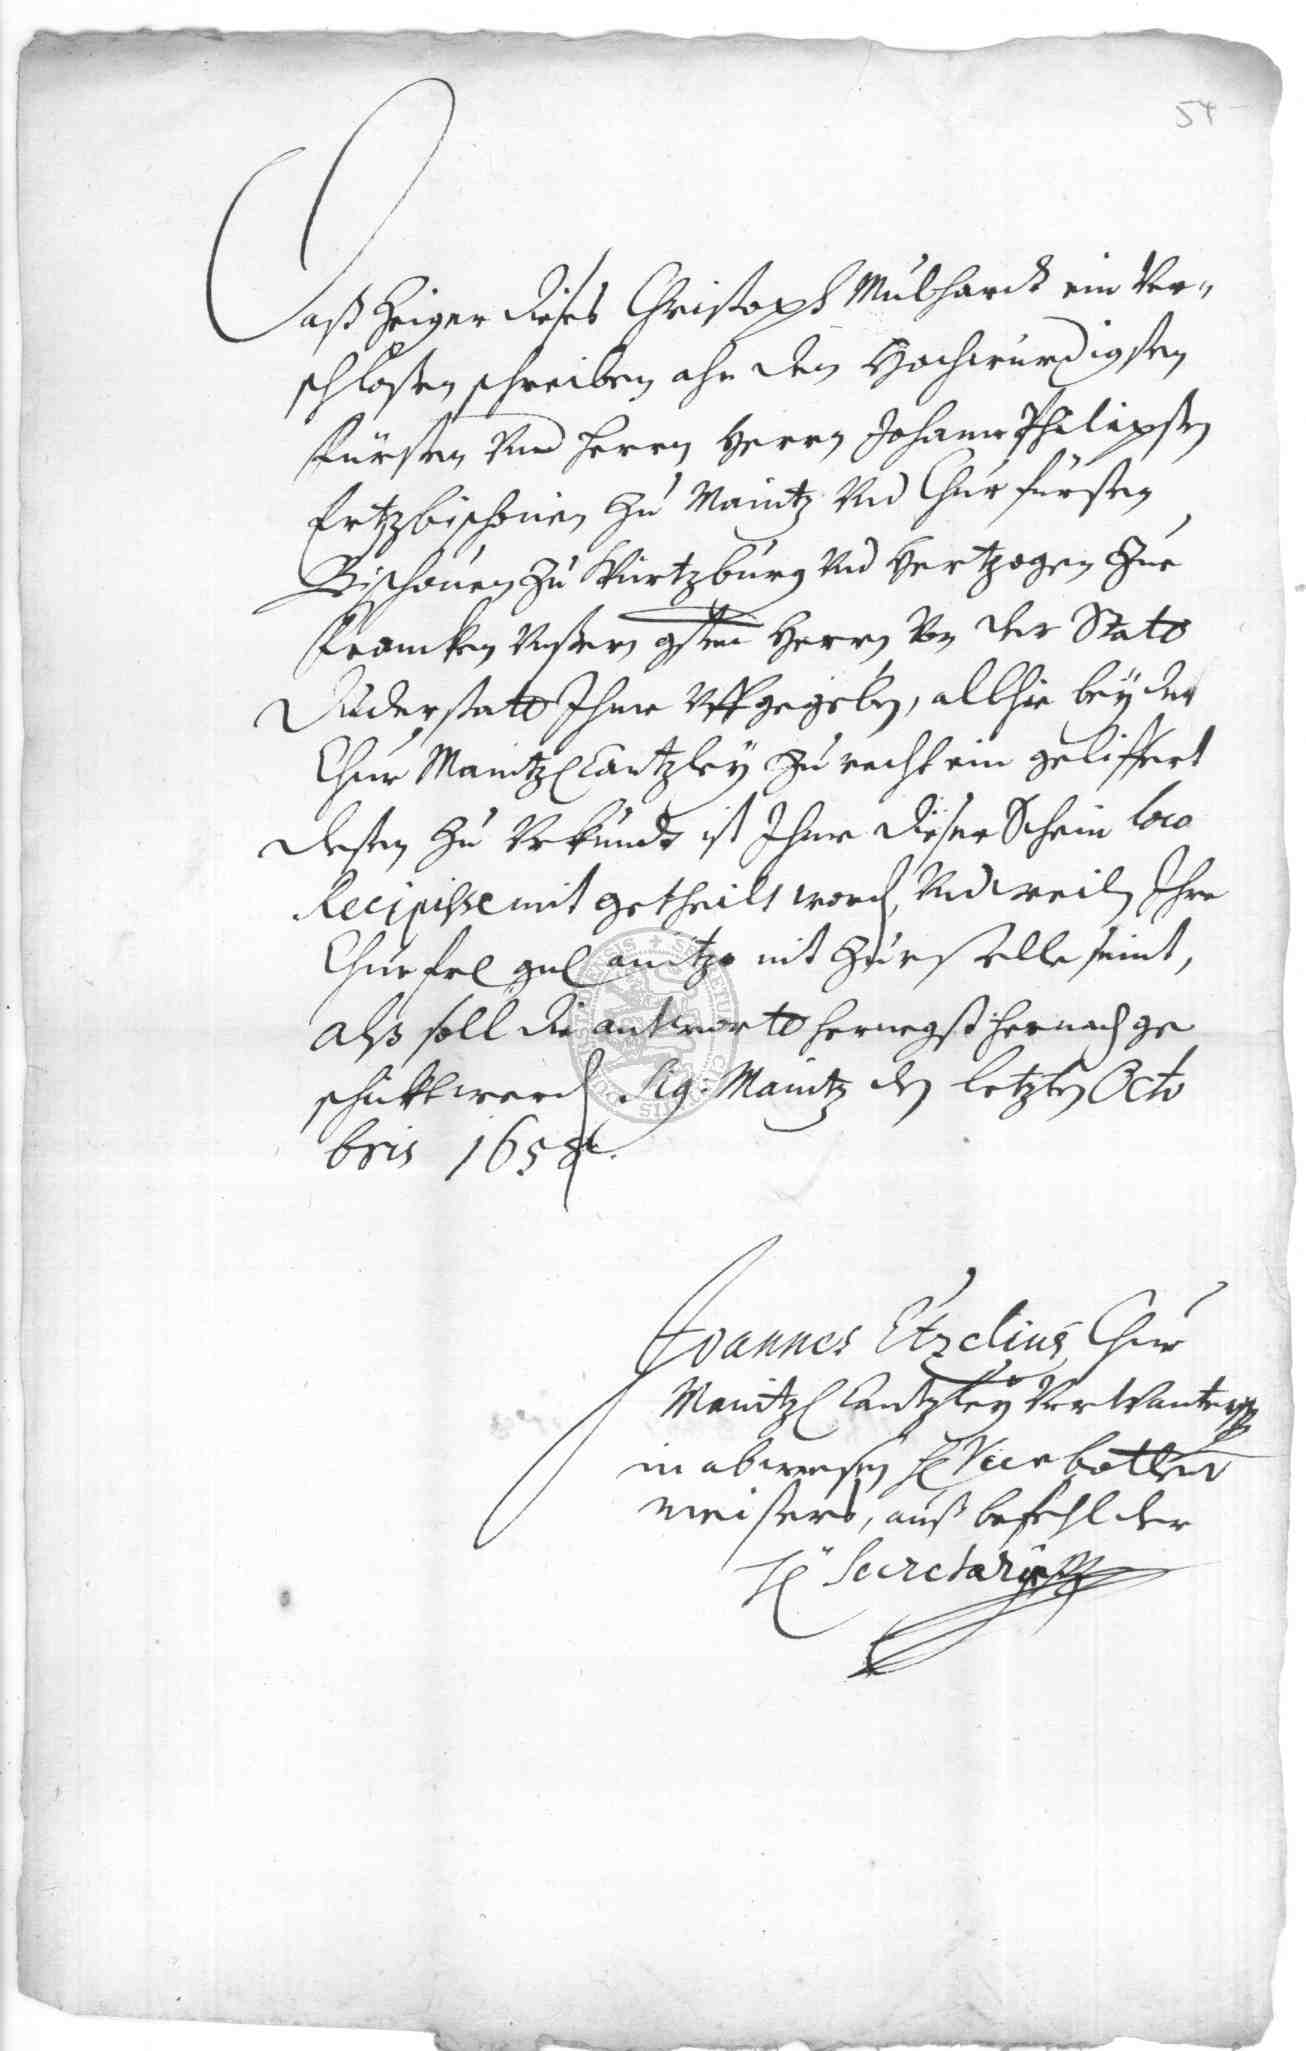 54
Daß Zeiger dieses Christoph Mulhardt ein Ver-
schloßen schreiben ahn den Hochwürdigsten
Fürsten Und Herrn Herrn Johann Philipsen
Ertzbischouen Zu Maintz Und Churfürsten
Bischouen Zu Würtzburg Und Hertzogen Zue
Francken Unßern gsten Herrn Von der Statt
Duderstatt Ihme Uffgegeben, alhie bey der
Chur Maintz Cantzley Zu recht ein geliffert
deßen Zu Urkundt ist Ihme dieser Schein loco
Recipisse mit getheilt word, Und weiln Ihre
Churfrl gnl anitzo nit Zur stelle seint,
Alß soll die antwortt hernegst hernach ge
schickt werd Sig: Maintz den letzten Octo
bris 165
Joannes Etzelius Chur
Maintz Cantzley Verwanter
in abwesen H
meisters, auß befehl der
H Secretarien